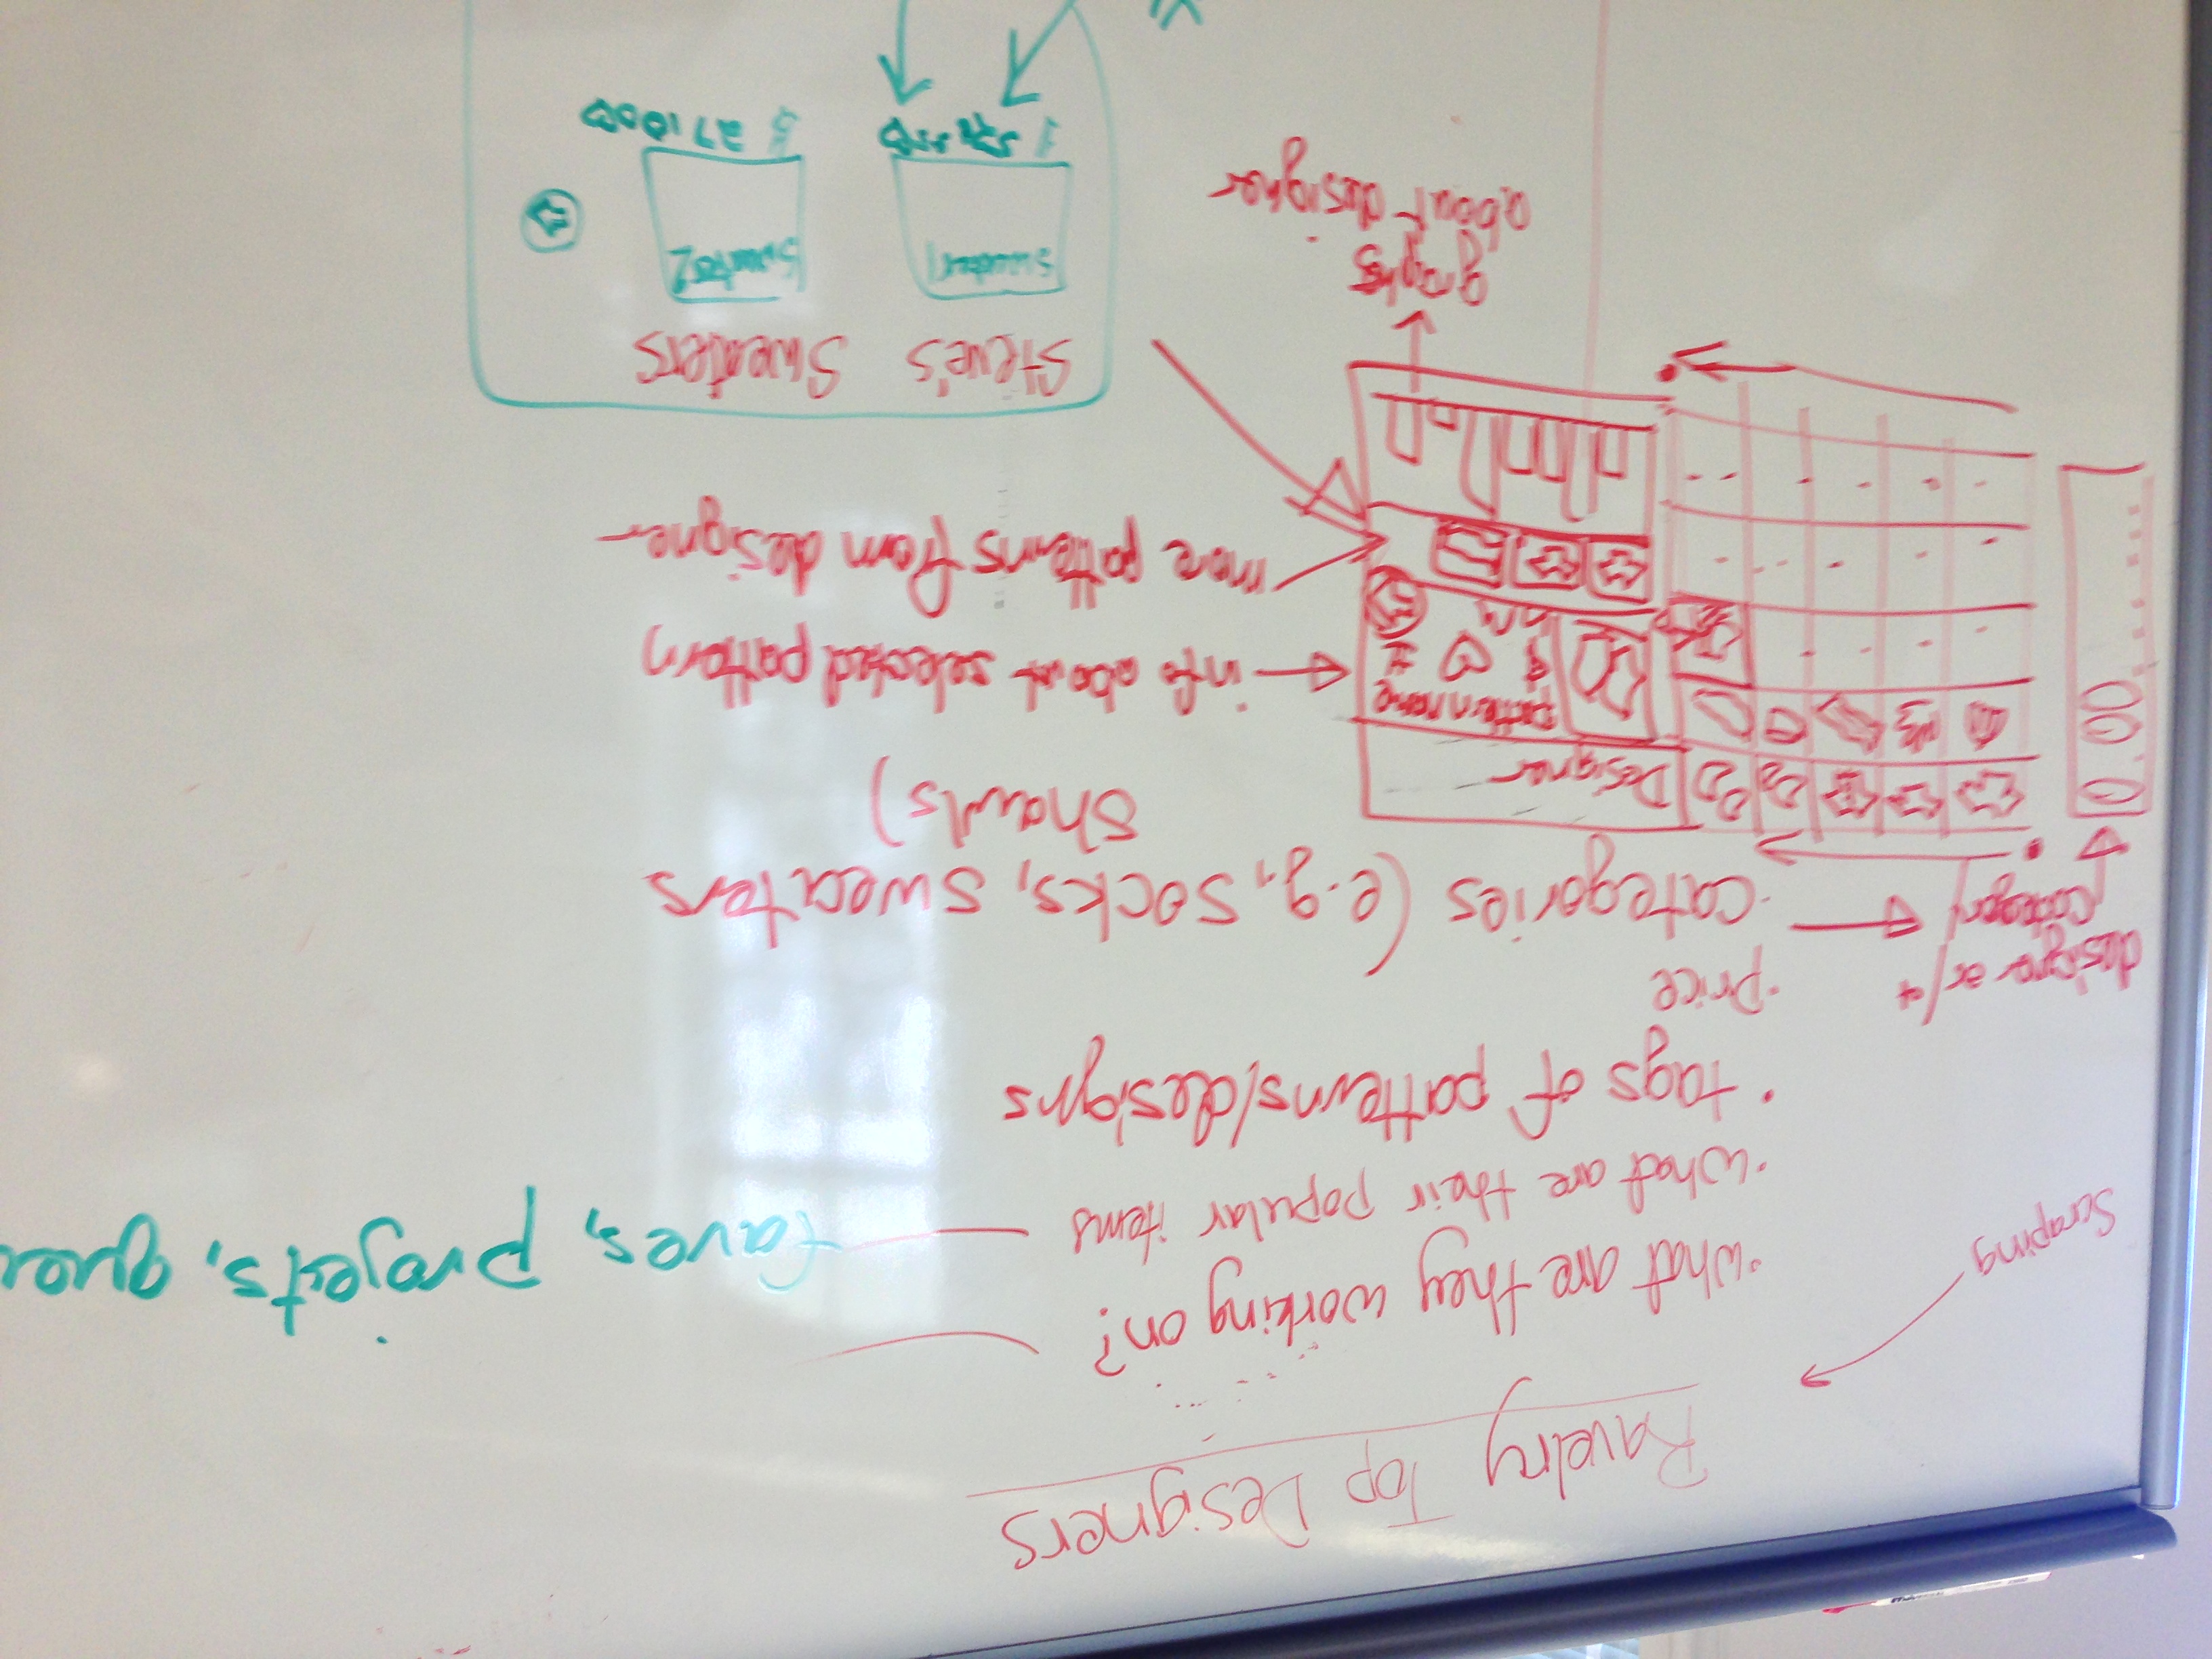 Ravelry Top Designers
Scraping
· What are they working on?
· What are their popular items
faves, projects, queu
· tags of patterns/designs
· Price
designer or/+
category
· categories (e.g., socks, sweaters
shawls)
Designer
pattern name
$ ♡ #
info about selected pattern
more patterns from designer
graphs
about designer
Steve's Sweaters
Sweater1
Sweater2
$ 27 1000♡